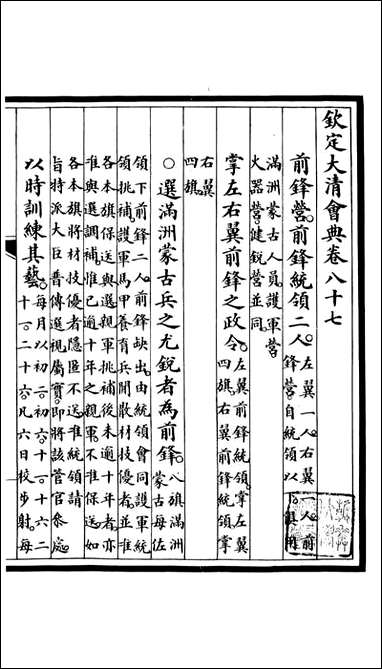 欽定大清會典卷八十七
前鋒營。前鋒統領二人。左翼一人。右翼一人。前
鋒營自統領以下俱用
滿洲蒙古人員。護軍營
火器營。健銳營並同。
掌左右翼前鋒之政令。左翼前鋒統領掌左翼
四旗。右翼前鋒統領掌
右翼
四旗。
○選滿洲蒙古兵之尤銳者為前鋒。八旗滿洲
蒙古每佐
領下前鋒二人。前鋒缺出。由統領會同護軍統
領挑補護軍馬甲養育兵閒散材技優者。並准
各本旗保送與選。親軍挑補後未逾十年者。亦
准與選調補。惟已逾十年之親軍。不准保送。如
各本旗將材技優者隱匿不送。准統領請
旨特派大臣普傳選視。屬實即將該管官叅處。
以時訓練其藝。每月以初二。初六。初十。十六。二
十。二十六。凡六日校步射。每